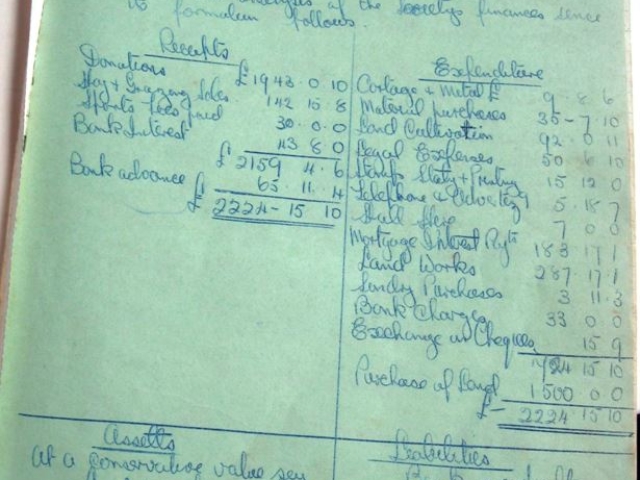 of the Societys finances since
its formation follows.
Receipts
Donations £1943 . 0 10
Hay & Grazing Sales 142 15 8
Sports Fees paid 30 . 0 . 0
Bank Interest 43 8 0
£ 2159 4 . 6
Bank advance 65 . 11 . 4
£ 2224 - 15 10
Expenditure
Cartage & Metal £ 9 . 8 . 6
Material purchases 35 - 7 10
Land Cultivation 92 . 0 11
Legal Expenses 50 6 10
Stamps Staty & Printing 15 12 0
Telephone & Advertizg 5 . 18 7
Stall Hire 7 0 0
Mortgage Interest Pyts 183 17 1
Land Works 287 . 17 1
Sundry Purchases 3 11 . 3
Bank Charges 33 0 0
Exchange on Cheques 15 9
724 15 10
Purchase of Land 1500 0 0
£ - 2224 15 10
Assetts
at a conservative value
Liabilities